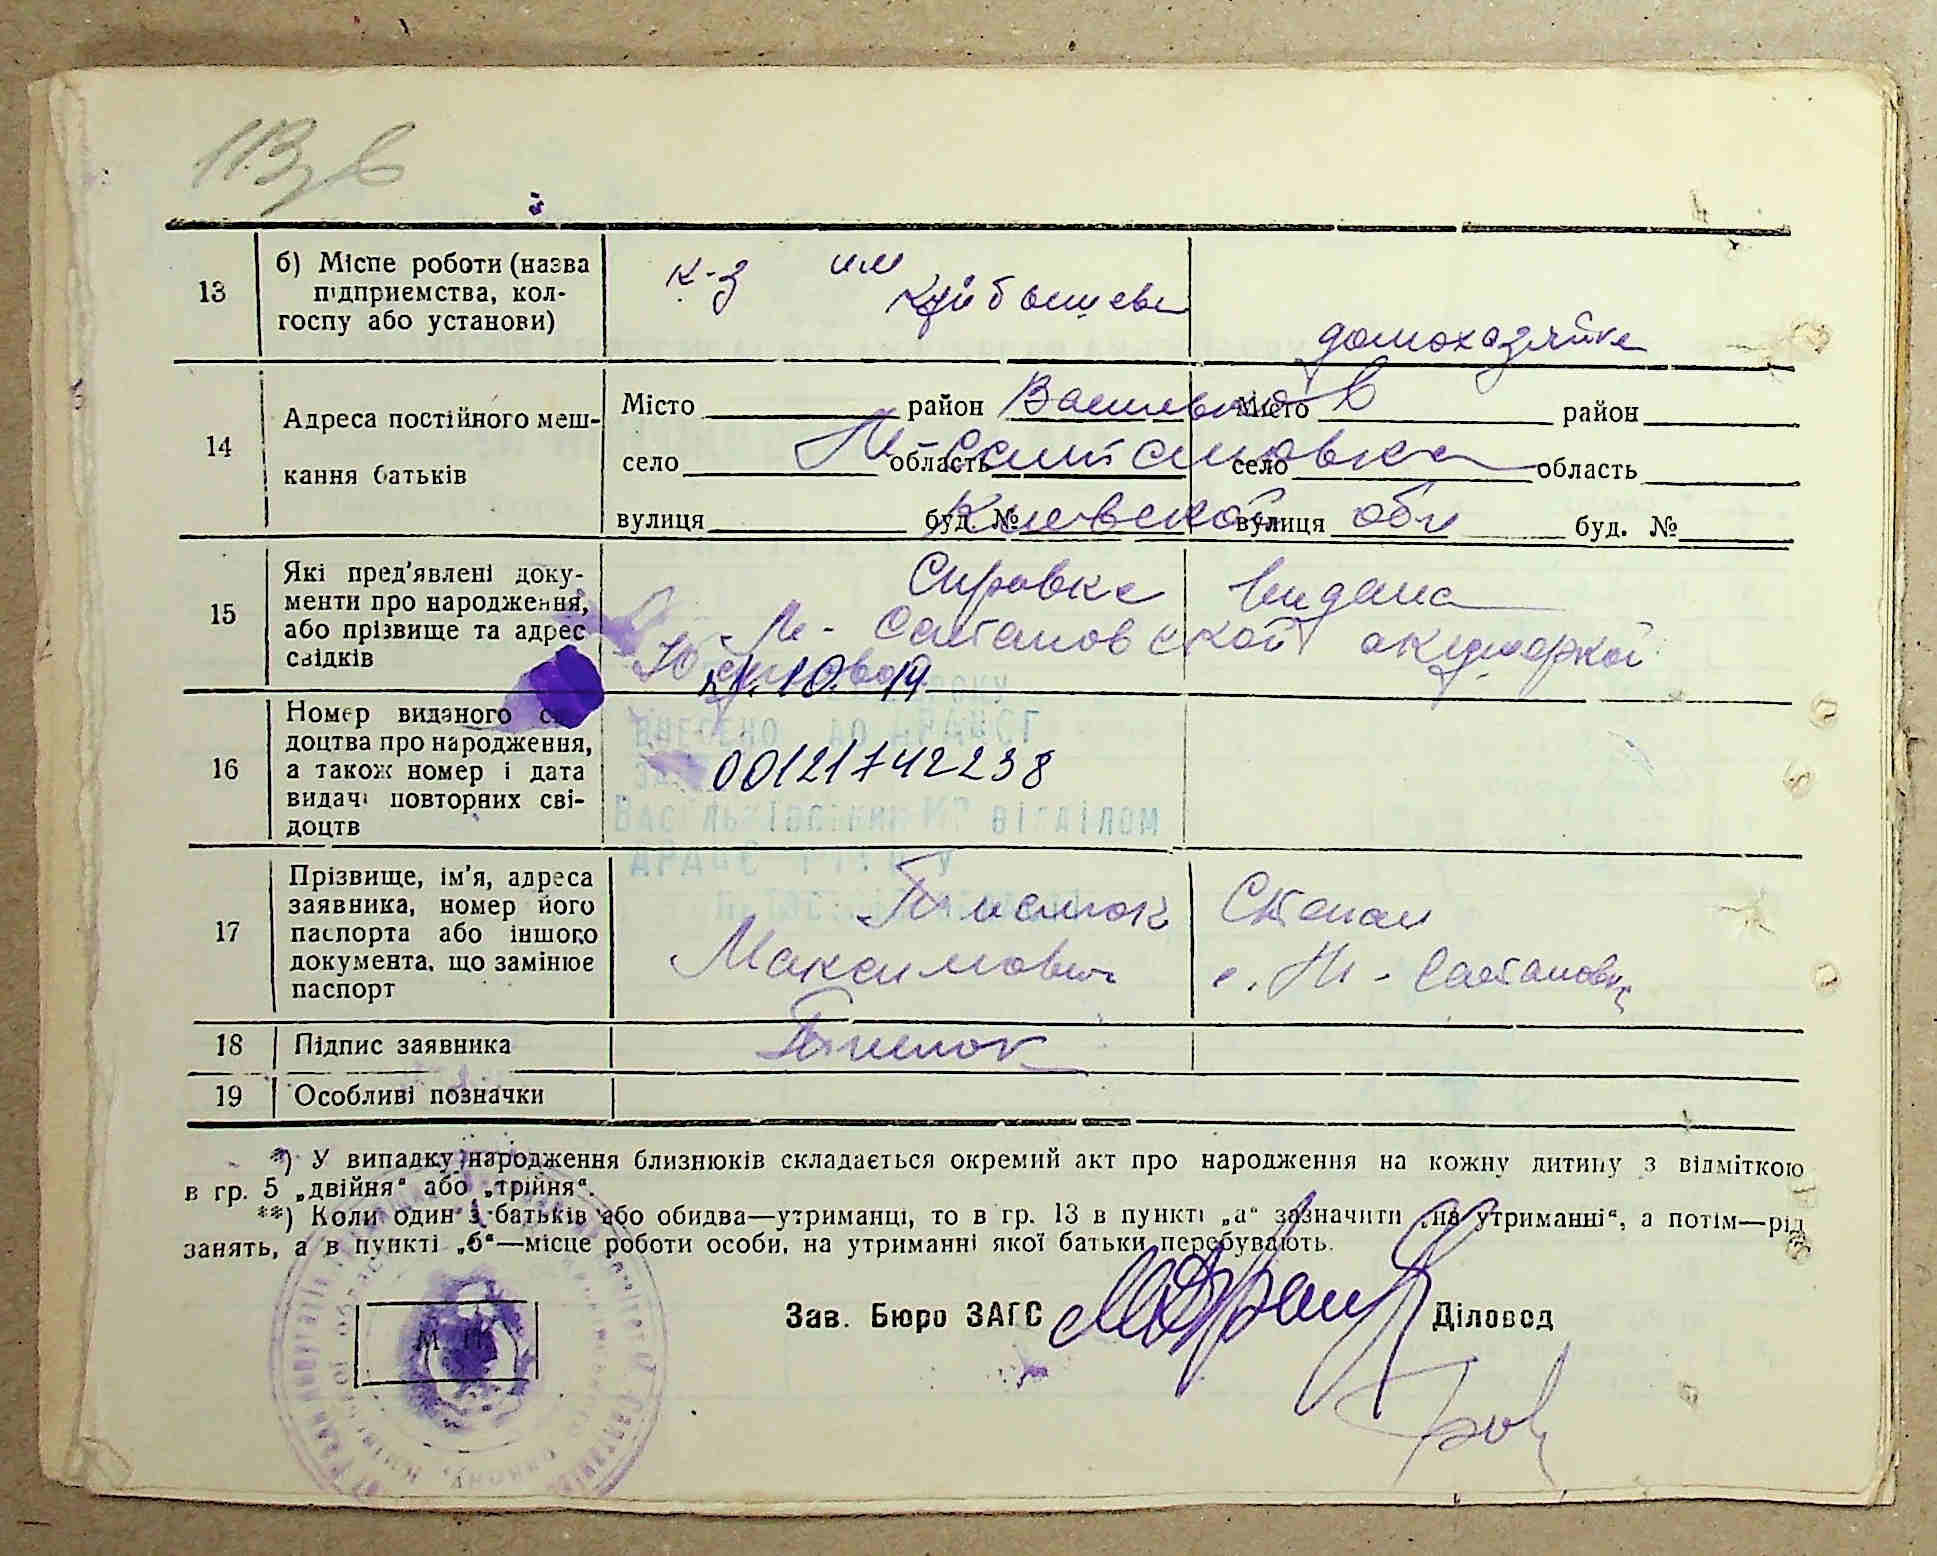 13
б) Місце роботи (назва підприємства, кол-
госпу або установи)
к-з им Куйбышева
домохазяйка
14
Адреса постійного меш-
кання батьків
Місто район Васильков
Місто район
село область М-Салтановка
село область
вулиця буд № Киевской обл
вулиця буд. №
15
Які пред'явлені доку-
менти про народження,
або прізвище та адрес
свідків
Справка видана
М-Салтановской акушеркой
16
Номер виданого сві-
доцтва про народження,
а також номер і дата
видачі повторних сві-
доцтв
00121742238
17
Прізвище, ім'я, адреса
заявника, номер його
паспорта або іншого
документа, що замінює
паспорт
Степан
Максимович с. М-Салтановка
18
Підпис заявника
19
Особливі позначки
*) У випадку народження близнюків складається окремий акт про народження на кожну дитину з відміткою
в гр. 5 „двійня“ або „трійня“.
**) Коли один з батьків або обидва—утриманці, то в гр. 13 в пункті „а“ зазначити „на утриманні“, а потім—рід
занять, а в пункті „б“—місце роботи особи, на утриманні якої батьки перебувають.
М. П.
Зав. Бюро ЗАГС
Діловод